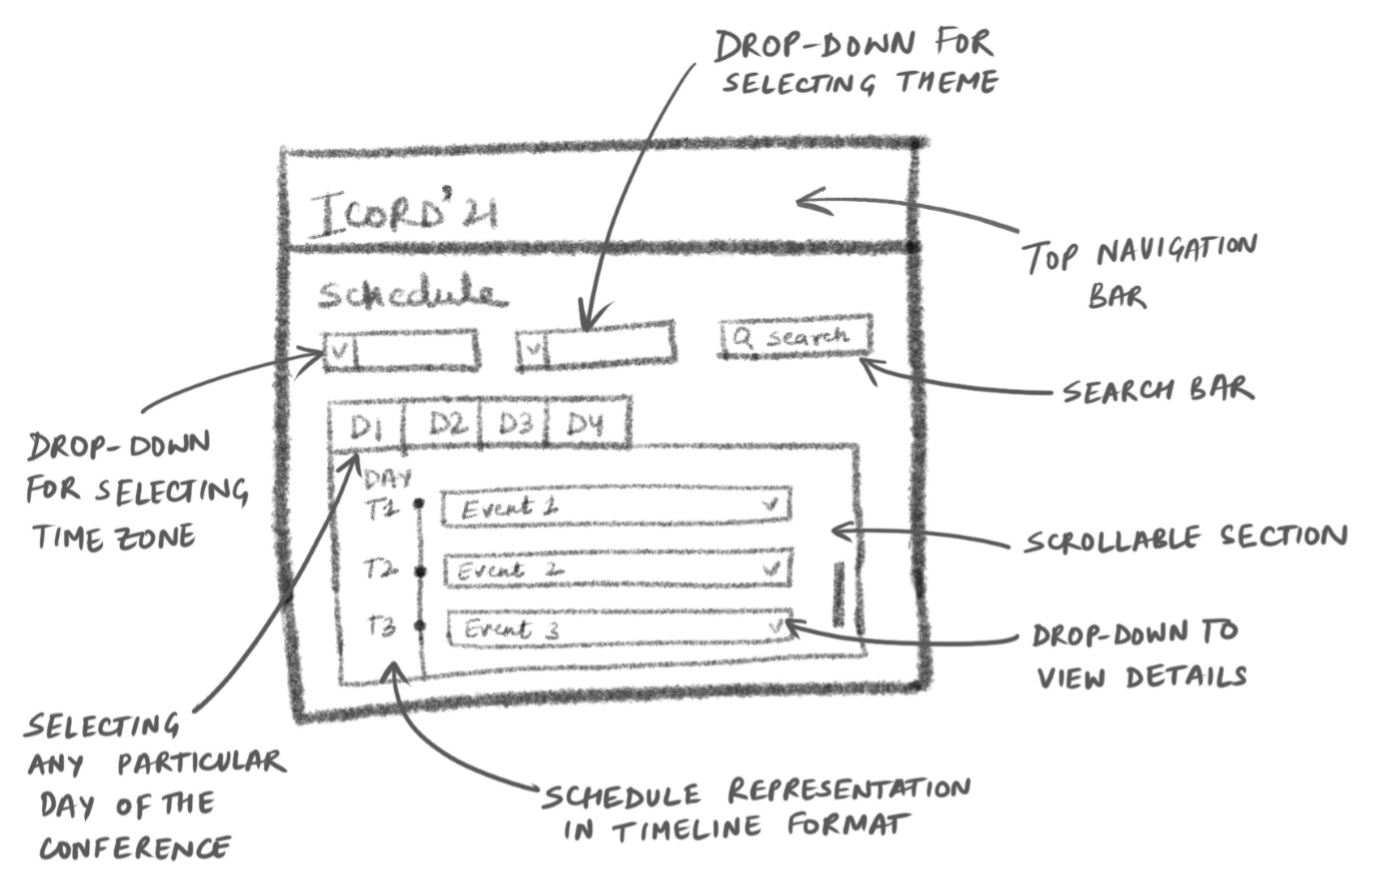 DROP-DOWN FOR
SELECTING THEME
ICORD'21
TOP NAVIGATION
BAR
Schedule
Search
SEARCH BAR
DROP-DOWN
FOR SELECTING
TIME ZONE
D1 D2 D3 D4
DAY
T1 Event 1
T2 Event 2
T3 Event 3
SCROLLABLE SECTION
DROP-DOWN TO
VIEW DETAILS
SELECTING
ANY PARTICULAR
DAY OF THE
CONFERENCE
SCHEDULE REPRESENTATION
IN TIMELINE FORMAT